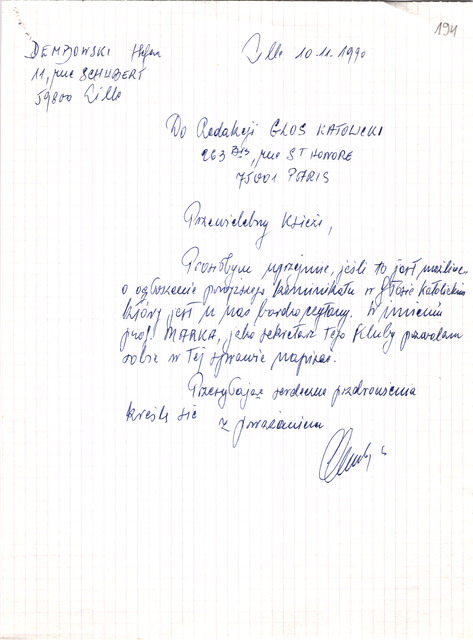 194
DEMBOWSKI Stefan
Lille 10-11-1990
11, rue SCHUBERT
59800 Lille
Do Redakcji GŁOS KATOLICKI
263 BIS, rue ST HONORE
75001 PARIS
Przewielebny Księże,
Prosiłbym uprzejmie, jeśli to jest możliwe
o ogłoszenie powyższego komunikatu w Głosie Katolickim
który jest u nas bardzo czytany. W imieniu
prof. MARKA, jako sekretarz Tego Klubu pozwalam
sobie w tej sprawie napisać.
Przesyłając serdeczne pozdrowienia
kreślę się
z poważaniem